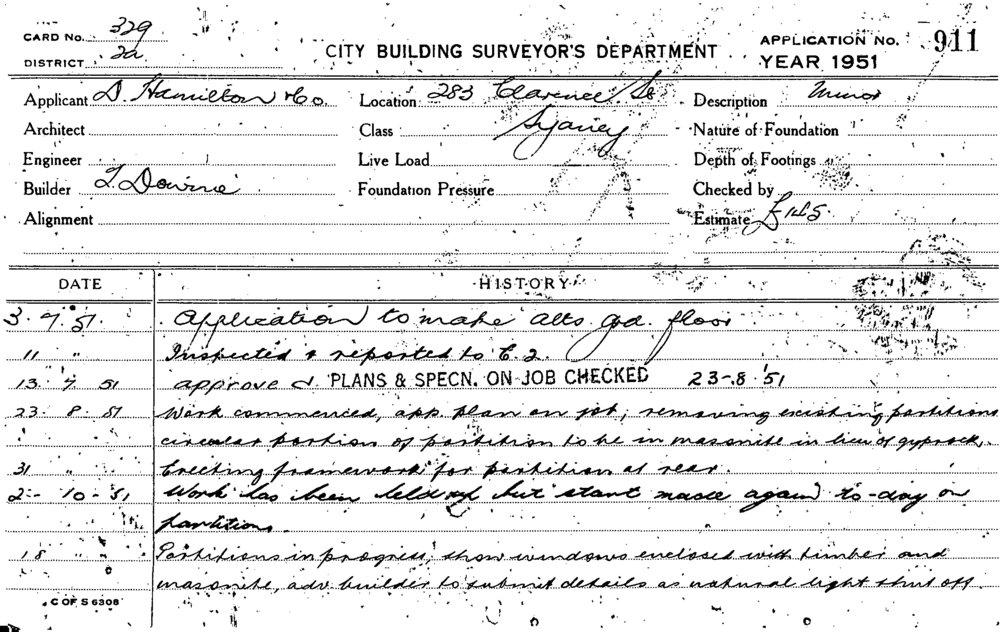 CARD No. 329
DISTRICT 2a
CITY BUILDING SURVEYOR'S DEPARTMENT
APPLICATION No. 911
YEAR 1951
Applicant D. Hamilton & Co. Location 283 Clarence St Description Minor
Architect Class Sydney Nature of Foundation
Engineer Live Load Depth of Footings
Builder Foundation Pressure Checked by
Alignment Estimate £145.
DATE HISTORY
3. 7. 51. Application to make alts gd. floor
11 " Inspected & reported to
13. 7. 51 approved. PLANS & SPECN. ON JOB CHECKED 23-8-51
23. 8. 51 Work commenced, app. plan on job, removing existing partitions
circular portion of partition to be in masonite in lieu of gyprock,
31 " Erecting framework for partition at rear.
2 - 10 - 51 Work has been held up but start made again to-day on
partitions.
18 " " Partitions in progress, show windows enclosed with timber and
masonite, adv. builder to submit details as natural light shut off
C OF S 6308